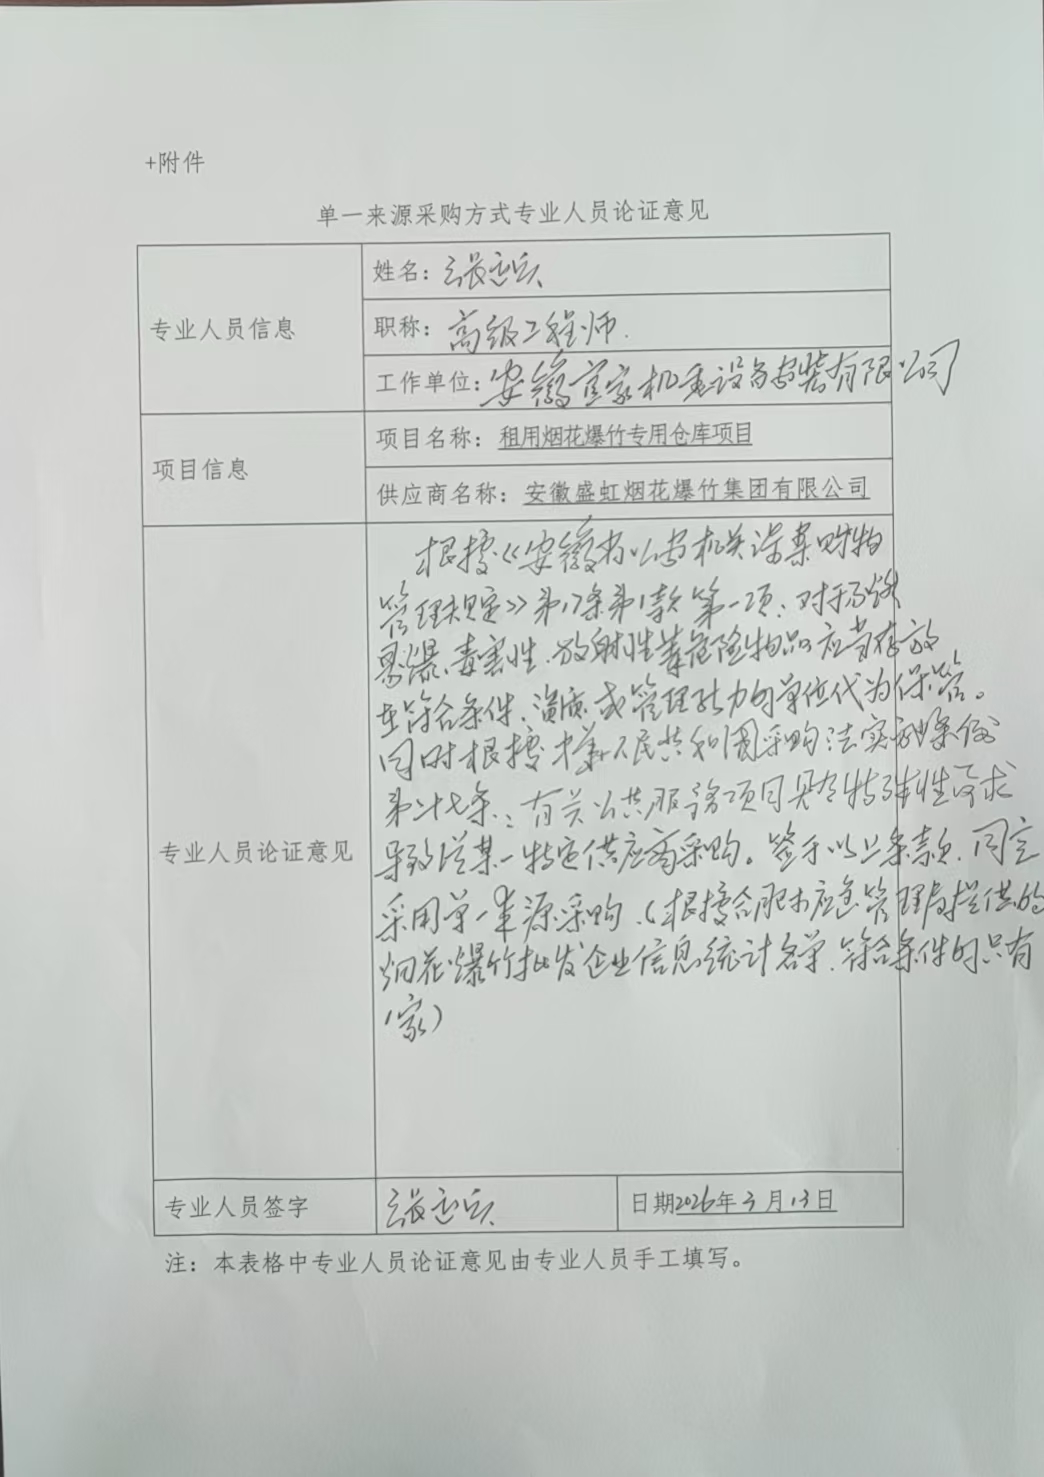 +附件
单一来源采购方式专业人员论证意见
专业人员信息
姓名：张
职称：高级工程师.
工作单位：安徽宜家机电设备安装有限公司
项目信息
项目名称：租用烟花爆竹专用仓库项目
供应商名称：安徽盛虹烟花爆竹集团有限公司
专业人员论证意见
根据《安徽省公安机关涉案财物
管理规定》第17条第1款第一项、对于易燃
易爆、毒害性、放射性等危险物品应当存放
至符合条件、资质或管理能力的单位代为保管。
同时根据中华人民共和国采购法实施条例
第二十七条：有关公共服务项目具有特殊性要求
导致从某一特定供应商采购。鉴于以上条款、同意
采用单一来源采购.（根据合肥市应急管理局提供的
烟花爆竹批发企业信息统计名单、符合条件的只有
1家）
专业人员签字
张
日期2026年3月13日
注：本表格中专业人员论证意见由专业人员手工填写。